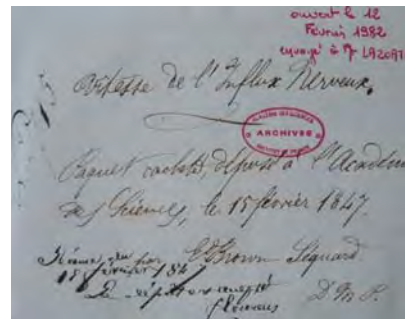 ouvert le 12
Février 1982
envoyé à Mr LAZORT
Vitesse de l'Influx Nerveux.
ARCHIVES
Paquet cacheté, déposé à l'Académie
des Sciences, le 15 février 1847.
Ed Brown Séquard
Séance du
15 février 1847
Le dépôt est accepté
D. M. P.